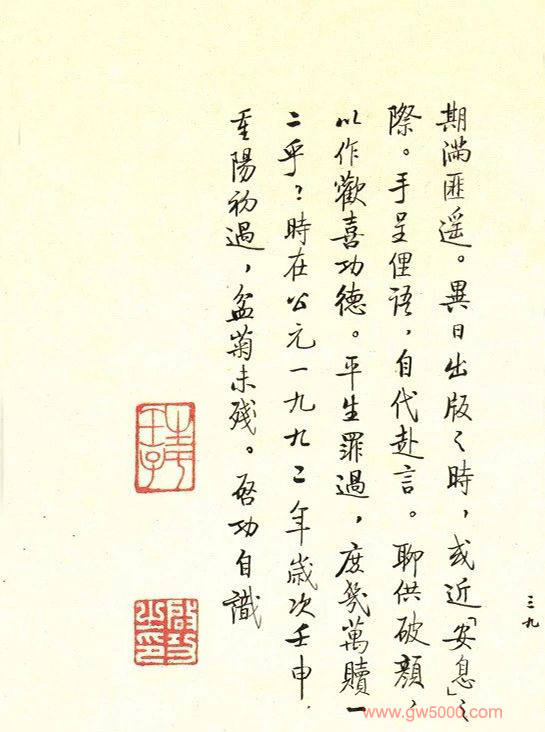 期滿匪遥。異日出版之時，或近「安息」之
際。手呈俚語，自代赴言。聊供破顏，
以作歡喜功德。平生罪過，庶幾萬贖一
二乎？時在公元一九九二年歲次壬申，
重陽初過，盆菊未殘。啓功自識
啟功之印
三九
www.gw5000.com